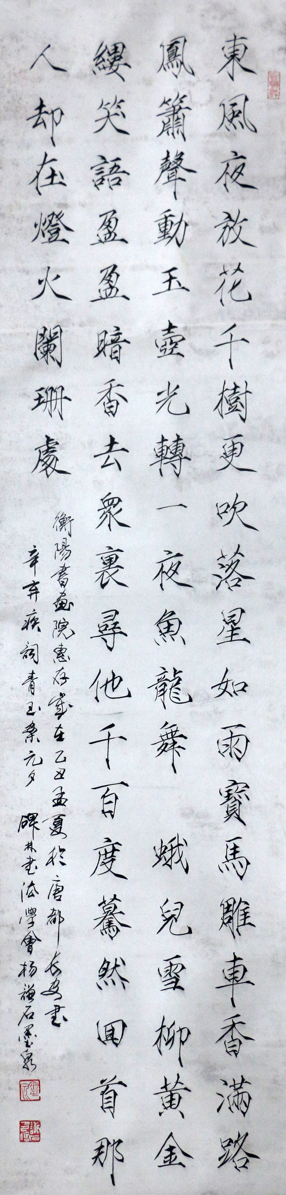 東風夜放花千樹更吹落星如雨寶馬雕車香滿路
鳳簫聲動玉壺光轉一夜魚龍舞 蛾兒雪柳黃金
縷笑語盈盈暗香去衆裏尋他千百度驀然回首那
人却在燈火闌珊處
衡陽書畫院惠存歲在乙丑孟夏於唐都長安書
辛弃疾詞青玉案元夕 碑林書法學會楊